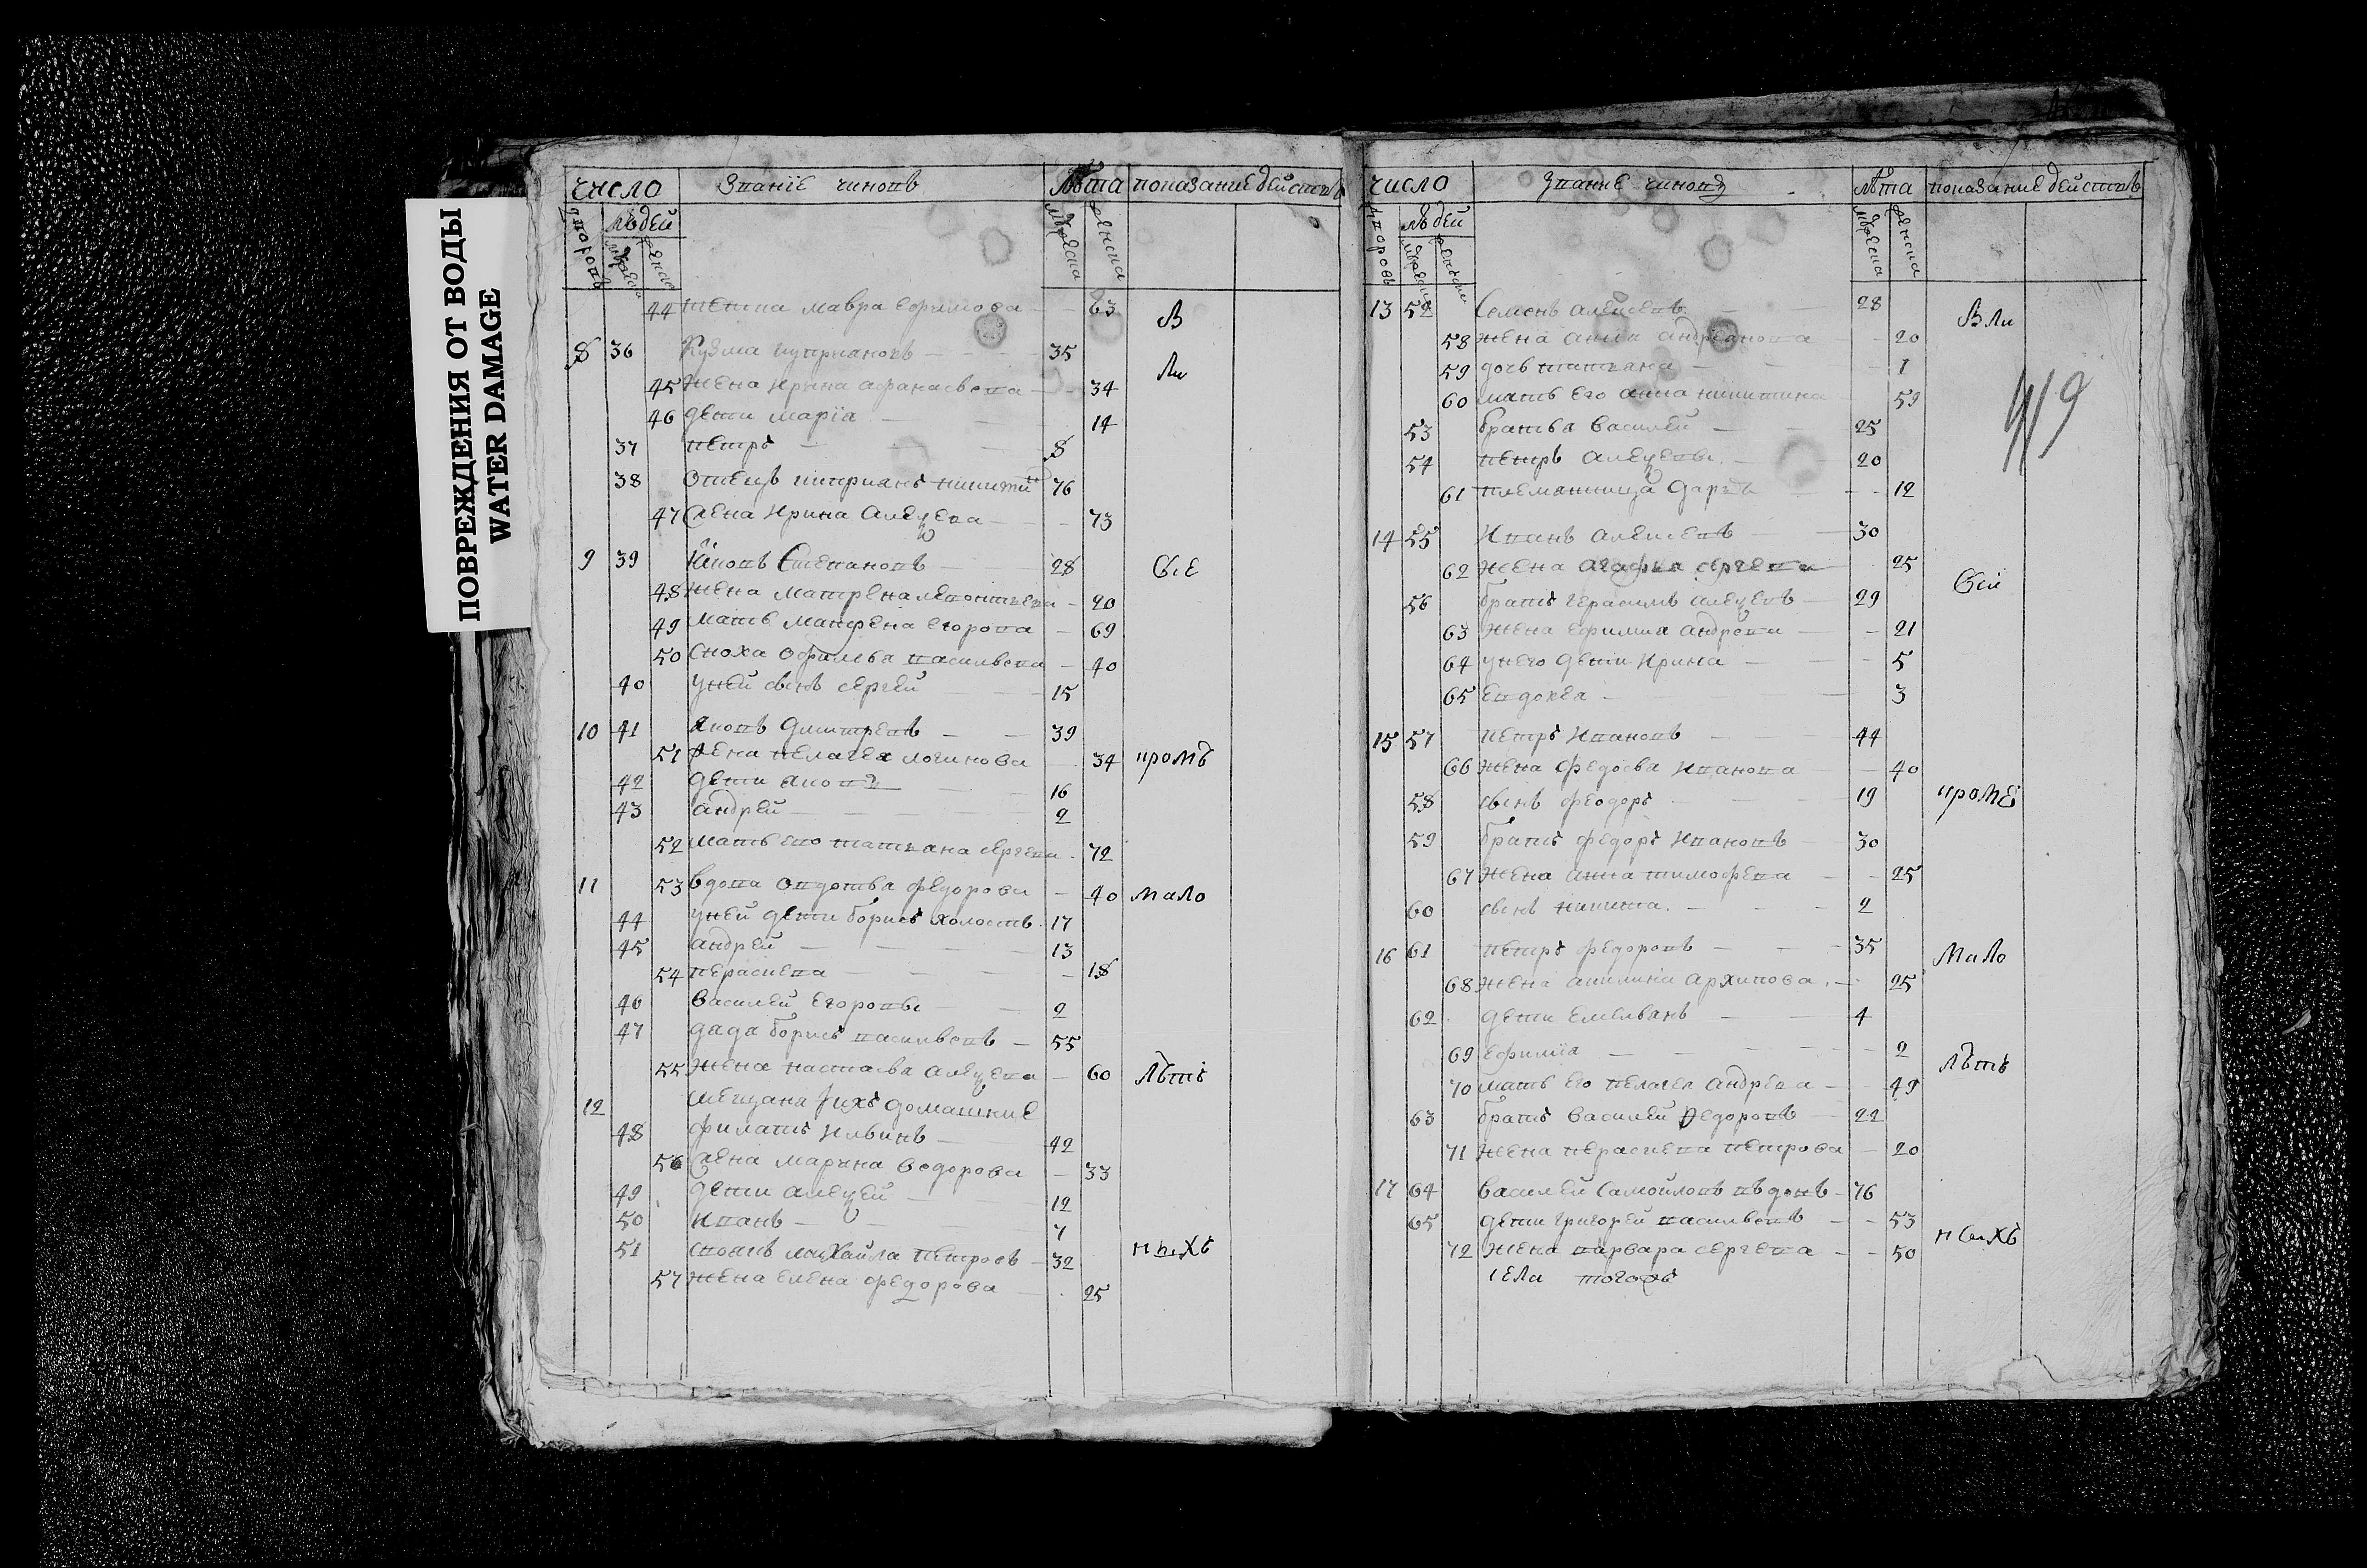 ПОВРЕЖДЕНИЯ ОТ ВОДЫ
WATER DAMAGE
число званїе чиновъ лѣта показание действъ
дворовъ людей
мужеска женска
мужеска женска
44 тетка мавра ефимова 63
В
8 36 Кузма куприановъ 35
Ли
45 жена Ирина афанасьева 34
46 дети марїа 14
37 петръ 8
38 отецъ киприанъ никити 76
47 жена Ирина Алеѯева 73
9 39 Степановъ 28
всѣ
48 жена матрена леонтьева 20
49 мать матрена егорова 69
50 сноха васильева 40
40 у ней сынъ сергей 15
10 41 Яковъ дмитревъ 39
51 жена пелагея логинова 34 кромѣ
42 дети яковъ 16
43 андрей 2
52 мать его татьяна сергева 72
11 53 вдова авдотья федорова 40 мало
44 у ней дети борисъ холостъ 17
45 андрей 13
54 пераскева 18
46 василей егоровъ 2
47 дядя борисъ васильевъ 55
55 жена настасья алеѯева 60 лѣтъ
12 мещана и ихъ домашние
48 филатъ ильинъ 42
56 жена марина Федорова 33
49 дети алеѯей 12
50 иванъ 7
51 михайла петровъ 32
ныхъ
57 жена елена федорова 25
число звание чиновъ лѣта показание действъ
дворовъ людей
мужеска женска
мужеска женска
419
13 52 Семенъ алексевъ 28
Вли
58 жена анна андрианова 20
59 дочь татьяна 1
60 мать его анна никитина 59
53 братья василей 25
54 петръ алеѯевы 20
61 племянница дарья 12
14 55 Иванъ алексевъ 30
62 жена агафья сергева 25
Всѣ
56 братъ герасимъ алеѯевъ 29
63 жена ефимия андреева 21
64 у него дети ирина 5
65 евдокея 3
15 57 петръ ивановъ 44
66 жена федосья иванова 40
кромѣ
58 сынъ феодоръ 19
59 братъ федоръ ивановъ 30
67 жена анна тимофева 25
60 сынъ никита 2
16 61 петръ федоровъ 35
мало
68 жена акилина архипова 25
62 дети емельянъ 4
69 ефимїа 2
лѣтъ
70 мать его пелагея андрева 49
63 братъ василей Федоровъ 22
71 жена пераскева петрова 20
17 64 василей самойловъ вдовъ 76
65 дети григорей васильевъ 53
ныхъ
72 жена варвара сергева 50
села тогожъ